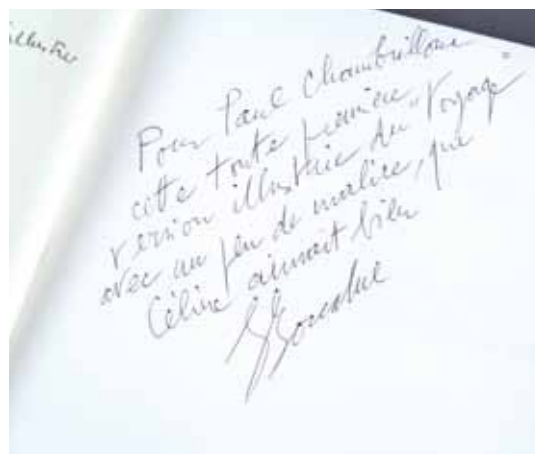 illustrer
Pour Paul Chambrillon
cette toute première
version illustrée du "Voyage"
avec un peu de malice, que
Céline aimait bien